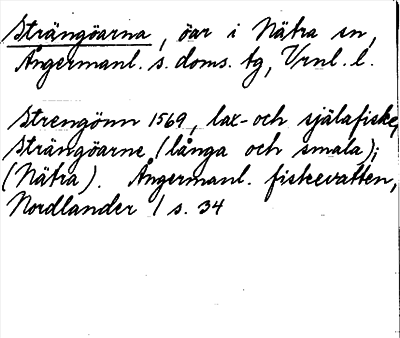 Strängöarna, öar i Nätra sn,
Ångermanl. s. doms. tg, Vrnl. l.
Strengönn 1569, lax- och själafiske,
Strängöarne (långa och smala);
(Nätra). Ångermanl. fiskevatten,
Nordlander 1 s. 34